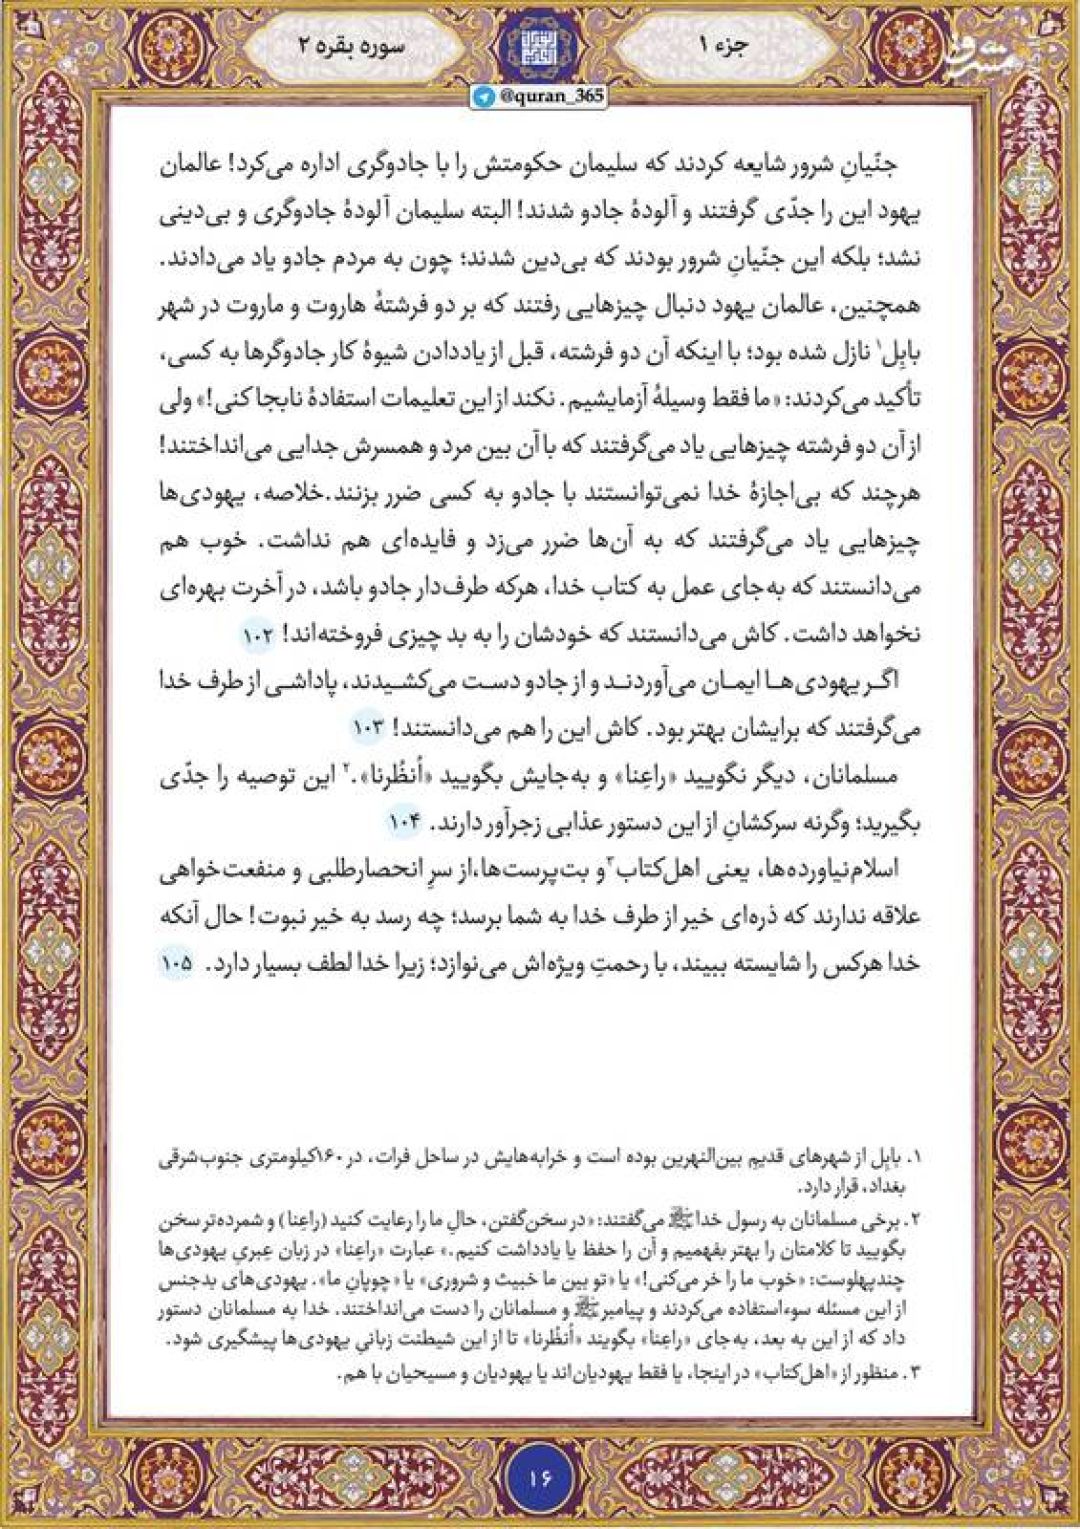 جزء ۱
سوره بقره ۲
@quran_365
جنّیانِ شرور شایعه کردند که سلیمان حکومتش را با جادوگری اداره می‌کرد! عالمان
یهود این را جدّی گرفتند و آلودهٔ جادو شدند! البته سلیمان آلودهٔ جادوگری و بی‌دینی
نشد؛ بلکه این جنّیانِ شرور بودند که بی‌دین شدند؛ چون به مردم جادو یاد می‌دادند.
همچنین، عالمان یهود دنبال چیزهایی رفتند که بر دو فرشتهٔ هاروت و ماروت در شهر
بابِل۱ نازل شده بود؛ با اینکه آن دو فرشته، قبل از یاددادن شیوهٔ کار جادوگرها به کسی،
تأکید می‌کردند: «ما فقط وسیلهٔ آزمایشیم. نکند از این تعلیمات استفادهٔ نابجا کنی!» ولی
از آن دو فرشته چیزهایی یاد می‌گرفتند که با آن بین مرد و همسرش جدایی می‌انداختند!
هرچند که بی‌اجازهٔ خدا نمی‌توانستند با جادو به کسی ضرر بزنند.خلاصه، یهودی‌ها
چیزهایی یاد می‌گرفتند که به آن‌ها ضرر می‌زد و فایده‌ای هم نداشت. خوب هم
می‌دانستند که به‌جای عمل به کتاب خدا، هرکه طرف‌دار جادو باشد، در آخرت بهره‌ای
نخواهد داشت. کاش می‌دانستند که خودشان را به بد چیزی فروخته‌اند! ۱۰۲
اگر یهودی‌ها ایمان می‌آوردند و از جادو دست می‌کشیدند، پاداشی از طرف خدا
می‌گرفتند که برایشان بهتر بود. کاش این را هم می‌دانستند! ۱۰۳
مسلمانان، دیگر نگویید «راعِنا» و به‌جایش بگویید «اُنظُرنا».۲ این توصیه را جدّی
بگیرید؛ وگرنه سرکشانِ از این دستور عذابی زجرآور دارند. ۱۰۴
اسلام‌نیاورده‌ها، یعنی اهل‌کتاب۳و بت‌پرست‌ها،از سرِ انحصارطلبی و منفعت‌خواهی
علاقه ندارند که ذره‌ای خیر از طرف خدا به شما برسد؛ چه رسد به خیر نبوت! حال آنکه
خدا هرکس را شایسته ببیند، با رحمتِ ویژه‌اش می‌نوازد؛ زیرا خدا لطف بسیار دارد. ۱۰۵
۱. بابِل از شهرهای قدیمِ بین‌النهرین بوده است و خرابه‌هایش در ساحل فرات، در ۱۶۰کیلومتری جنوب‌شرقی
بغداد، قرار دارد.
۲. برخی مسلمانان به رسول خداﷺ می‌گفتند: «در سخن‌گفتن، حالِ ما را رعایت کنید (راعِنا) و شمرده‌تر سخن
بگویید تا کلامتان را بهتر بفهمیم و آن را حفظ یا یادداشت کنیم.» عبارت «راعِنا» در زبان عِبریِ یهودی‌ها
چندپهلوست: «خوب ما را خر می‌کنی!» یا «تو بین ما خبیث و شروری» یا «چوپانِ ما». یهودی‌های بدجنس
از این مسئله سوءاستفاده می‌کردند و پیامبرﷺ و مسلمانان را دست می‌انداختند. خدا به مسلمانان دستور
داد که از این به بعد، به‌جای «راعِنا» بگویند «اُنظُرنا» تا از این شیطنت زبانیِ یهودی‌ها پیشگیری شود.
۳. منظور از «اهل‌کتاب» در اینجا، یا فقط یهودیان‌اند یا یهودیان و مسیحیان با هم.
۱۶